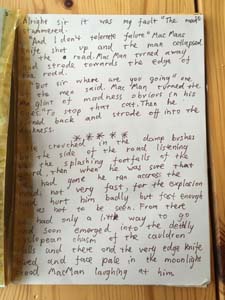 Alright sir it was my fault" The man
stammered.
"And I don't tolerate failure" Mac Mans
shot up and the man collapsed
the road. MacMan turned away
and strode towards the edge of
road.
"But sir where are you going" one
men said. Mac Man turned the
glint of madness obvious in his
"To stop that cat. Then he
back and strode off into the
darkness.
****
crouched in the damp bushes
by the side of the road listening
splashing footfalls of the
then when he was sure that
had gone he ran across the
road not very fast, for the explosion
had hurt him badly but fast enough
as not to be seen. From there
had only a little way to go
and soon emerged into the deathly
chasm of the cauldron
and there and the very edge knife
and face pale in the moonlight
stood MacMan laughing at him